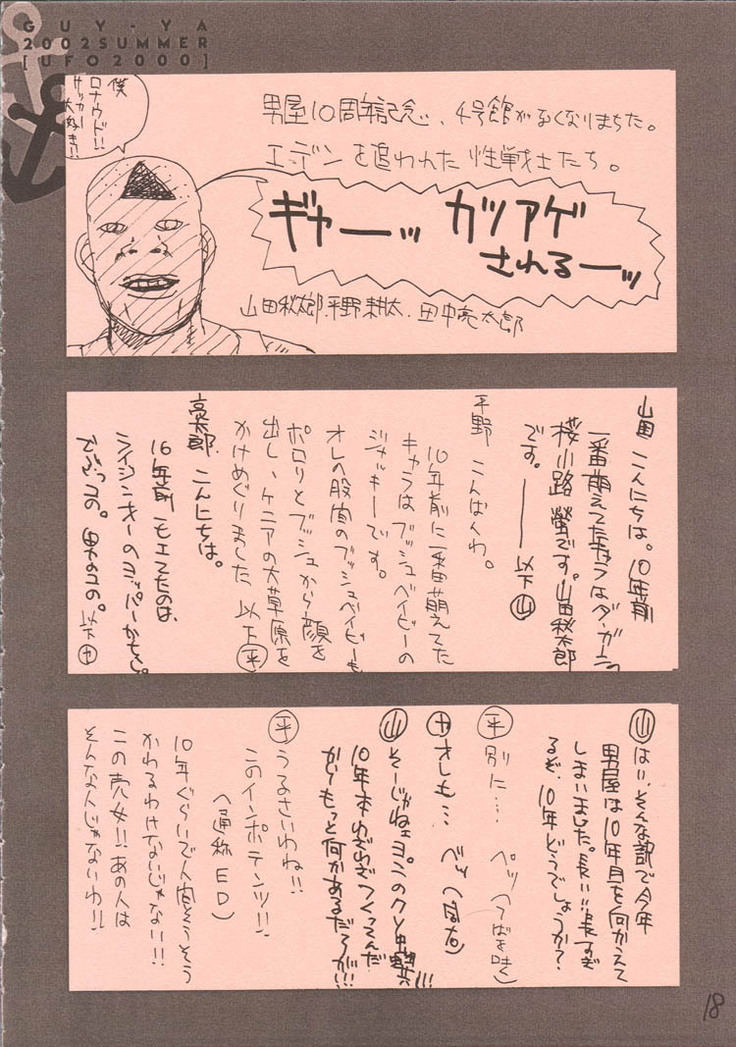 GUY-YA
2002SUMMER
[UFO2000]
僕
ロナウド!!
サッカー
大好き!!
男屋10周年記念、4号館がなくなりまちた。
エデンを追われた性戦士たち。
ギャーッ カツアゲ
されるーッ
山田秋太郎.平野耕太.田中亮太郎
山田 こんにちは。10年前
一番萌えてたキャラはダ・ガーンの
桜小路螢です。山田秋太郎
です。―― 以下㊤
平野 こんばくわ。
10年前に一番萌えてた
キャラはブッシュベイビーの
ジャッキーです。
オレの股宮のブッシュベイビーも
ポロリとブッシュから顔を
出し、ケニアの大草原を
かけめぐりました 以下(平)
亮太郎 こんにちは。
16年前モエてたのは、
男のコの。以下(中)
(山) はい、そんな訳で今年
男屋は10年目を向かえて
しまいました。長い!!長すぎ
るぞ、10年どうでしょうか?
(平) 別に… ペッ(つばを吐く)
(中) オレも… ペッ
(山) そーじゃねェ
10年本わざわざつくってんだ
からもっと何かあるだろが!!!
(平) うるさいわね!!
このインポテンツ!!
(通称ED)
10年ぐらいで人変そうそう
かわるわけないじゃない!!
この売女!!あの人は
そんな人じゃないわ!!
18